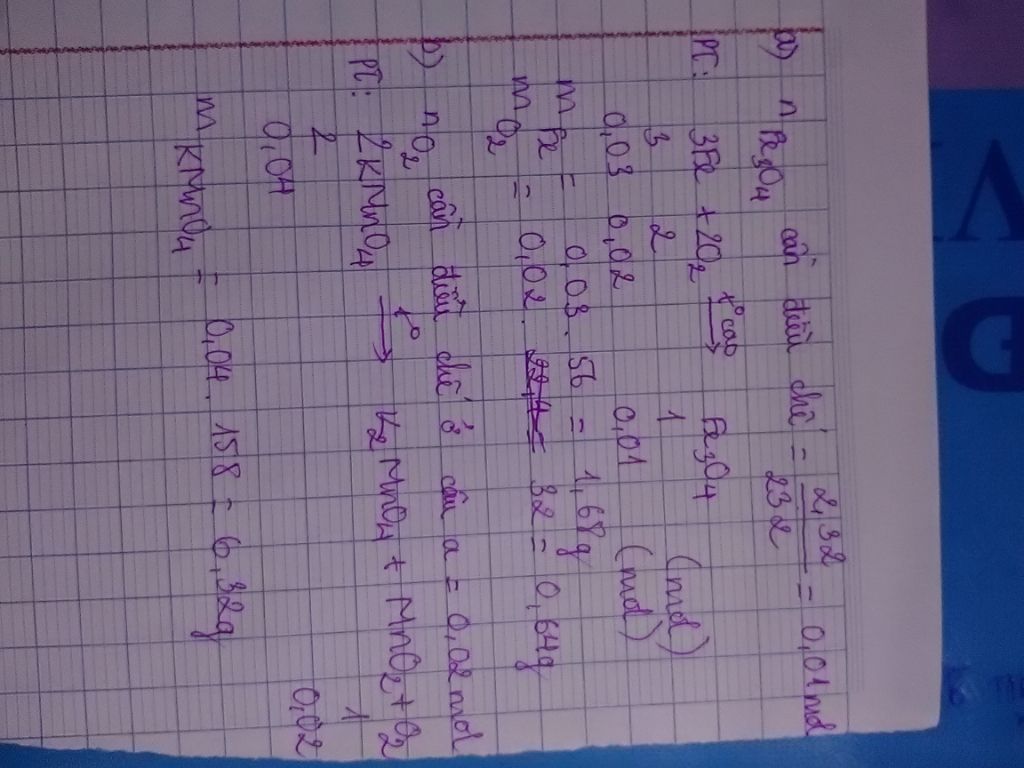 a) n Fe3O4 cần điều chế = 2,32 / 232 = 0,01 mol
PT: 3Fe + 2O2 t° cao → Fe3O4
3 2 1 (mol)
0,03 0,02 0,01 (mol)
m Fe = 0,03 . 56 = 1,68g
m O2 = 0,02 . 32 = 0,64g
b) n O2 cần điều chế ở câu a = 0,02 mol
PT: 2KMnO4 t° → K2MnO4 + MnO2 + O2
2 1
0,04 0,02
m KMnO4 = 0,04 . 158 = 6,32g